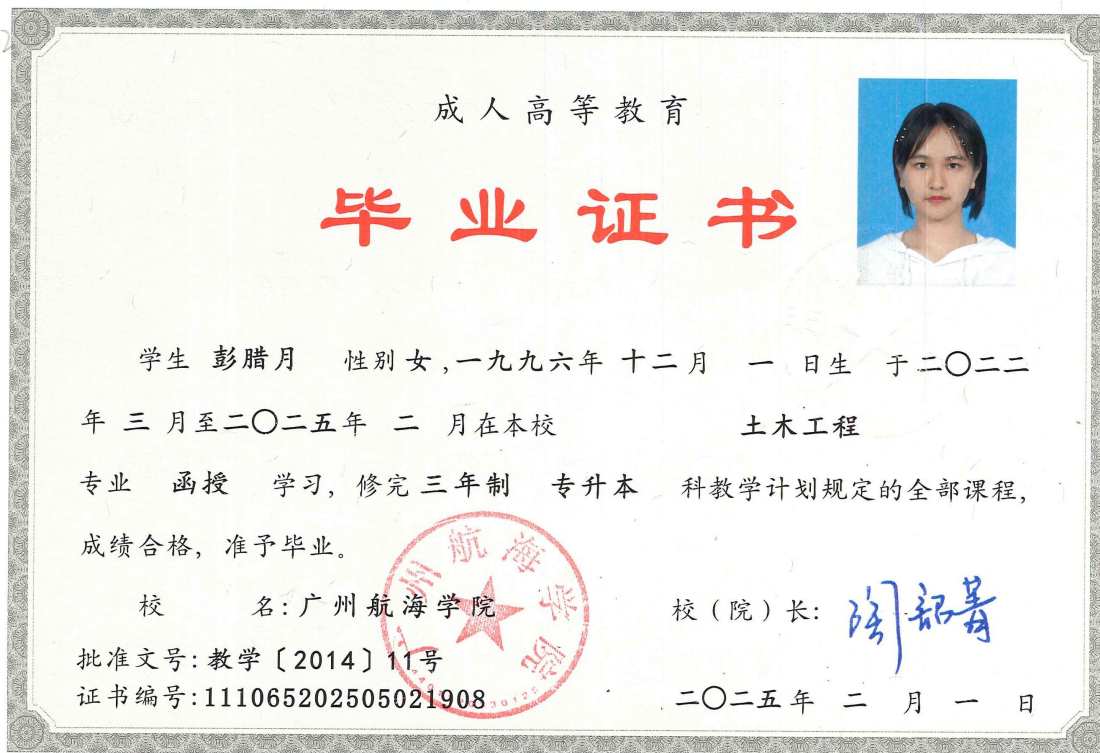 成人高等教育
毕业证书
学生 彭腊月 性别 女 ,一九九六年 十二月 一 日生 于二〇二二
年 三 月至二〇二五年 二 月在本校 土木工程
专业 函授 学习, 修完 三年制 专升本 科教学计划规定的全部课程,
成绩合格, 准予毕业。
校 名: 广州航海学院
校（院）长:
批准文号: 教学〔2014〕11号
证书编号: 111065202505021908
二〇二五年 二 月 一 日
广州航海学院